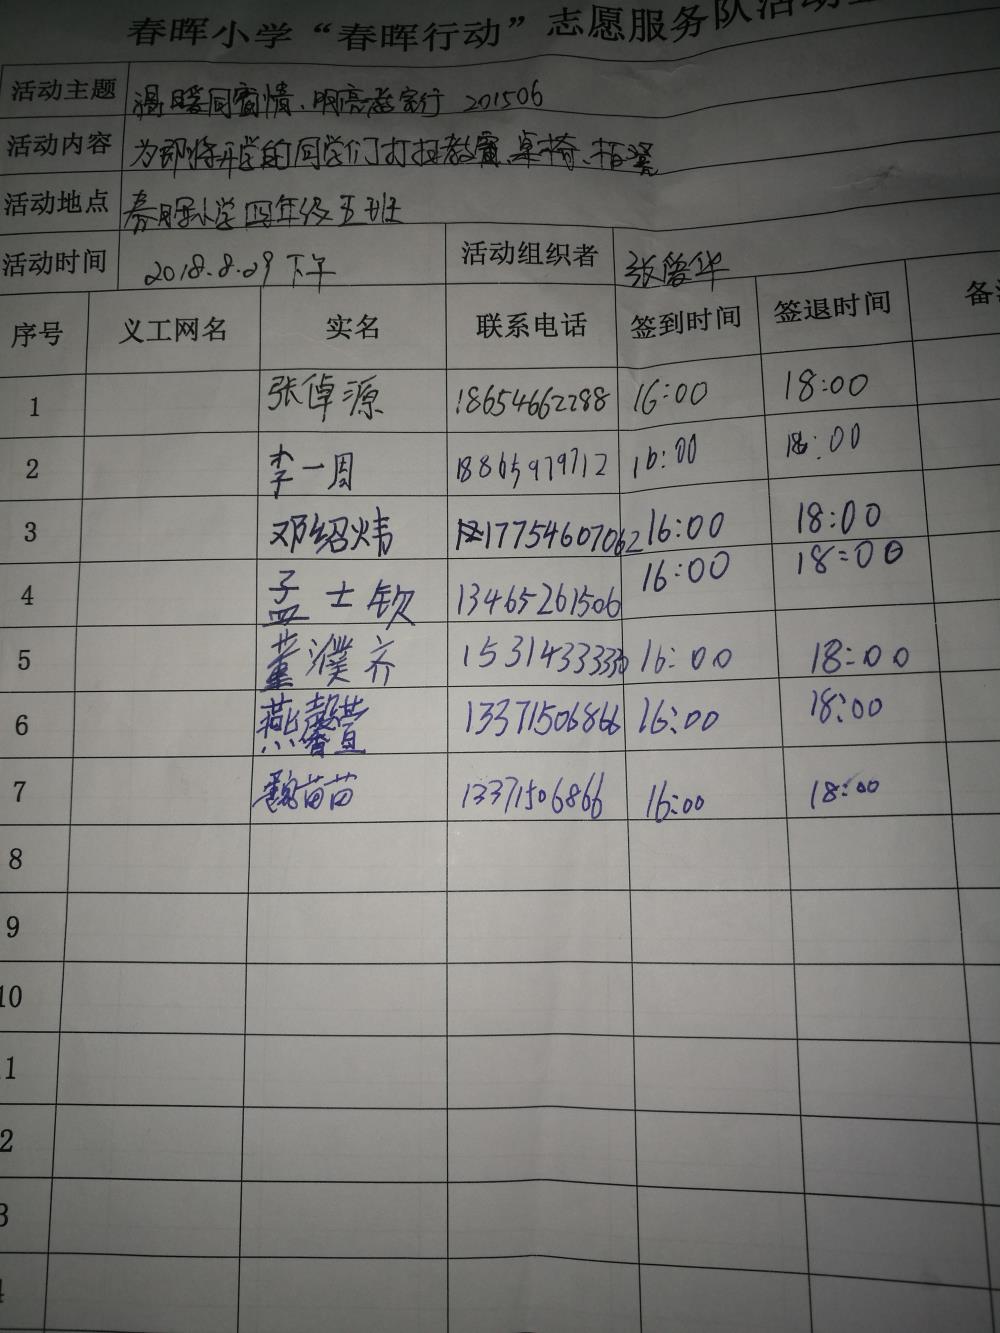 春晖小学“春晖行动”志愿服务队活动
活动主题 温暖同窗情、明亮教室行 201506
活动内容 为即将开学的同学们打扫教室、桌椅、板凳
活动地点 春晖小学四年级五班
活动时间 2018.8.29下午 活动组织者 张俊华
序号 义工网名 实名 联系电话 签到时间 签退时间 备注
1 张倬源 18654662288 16:00 18:00
2 李一周 18865979712 16:00 18:00
3 邓绍炜 17754607062 16:00 18:00
4 孟士钦 13465261506 16:00 18:00
5 董濮齐 15314333330 16:00 18:00
6 燕馨萱 13371506866 16:00 18:00
7 魏苗苗 13371506866 16:00 18:00
8
9
10
1
2
3
4